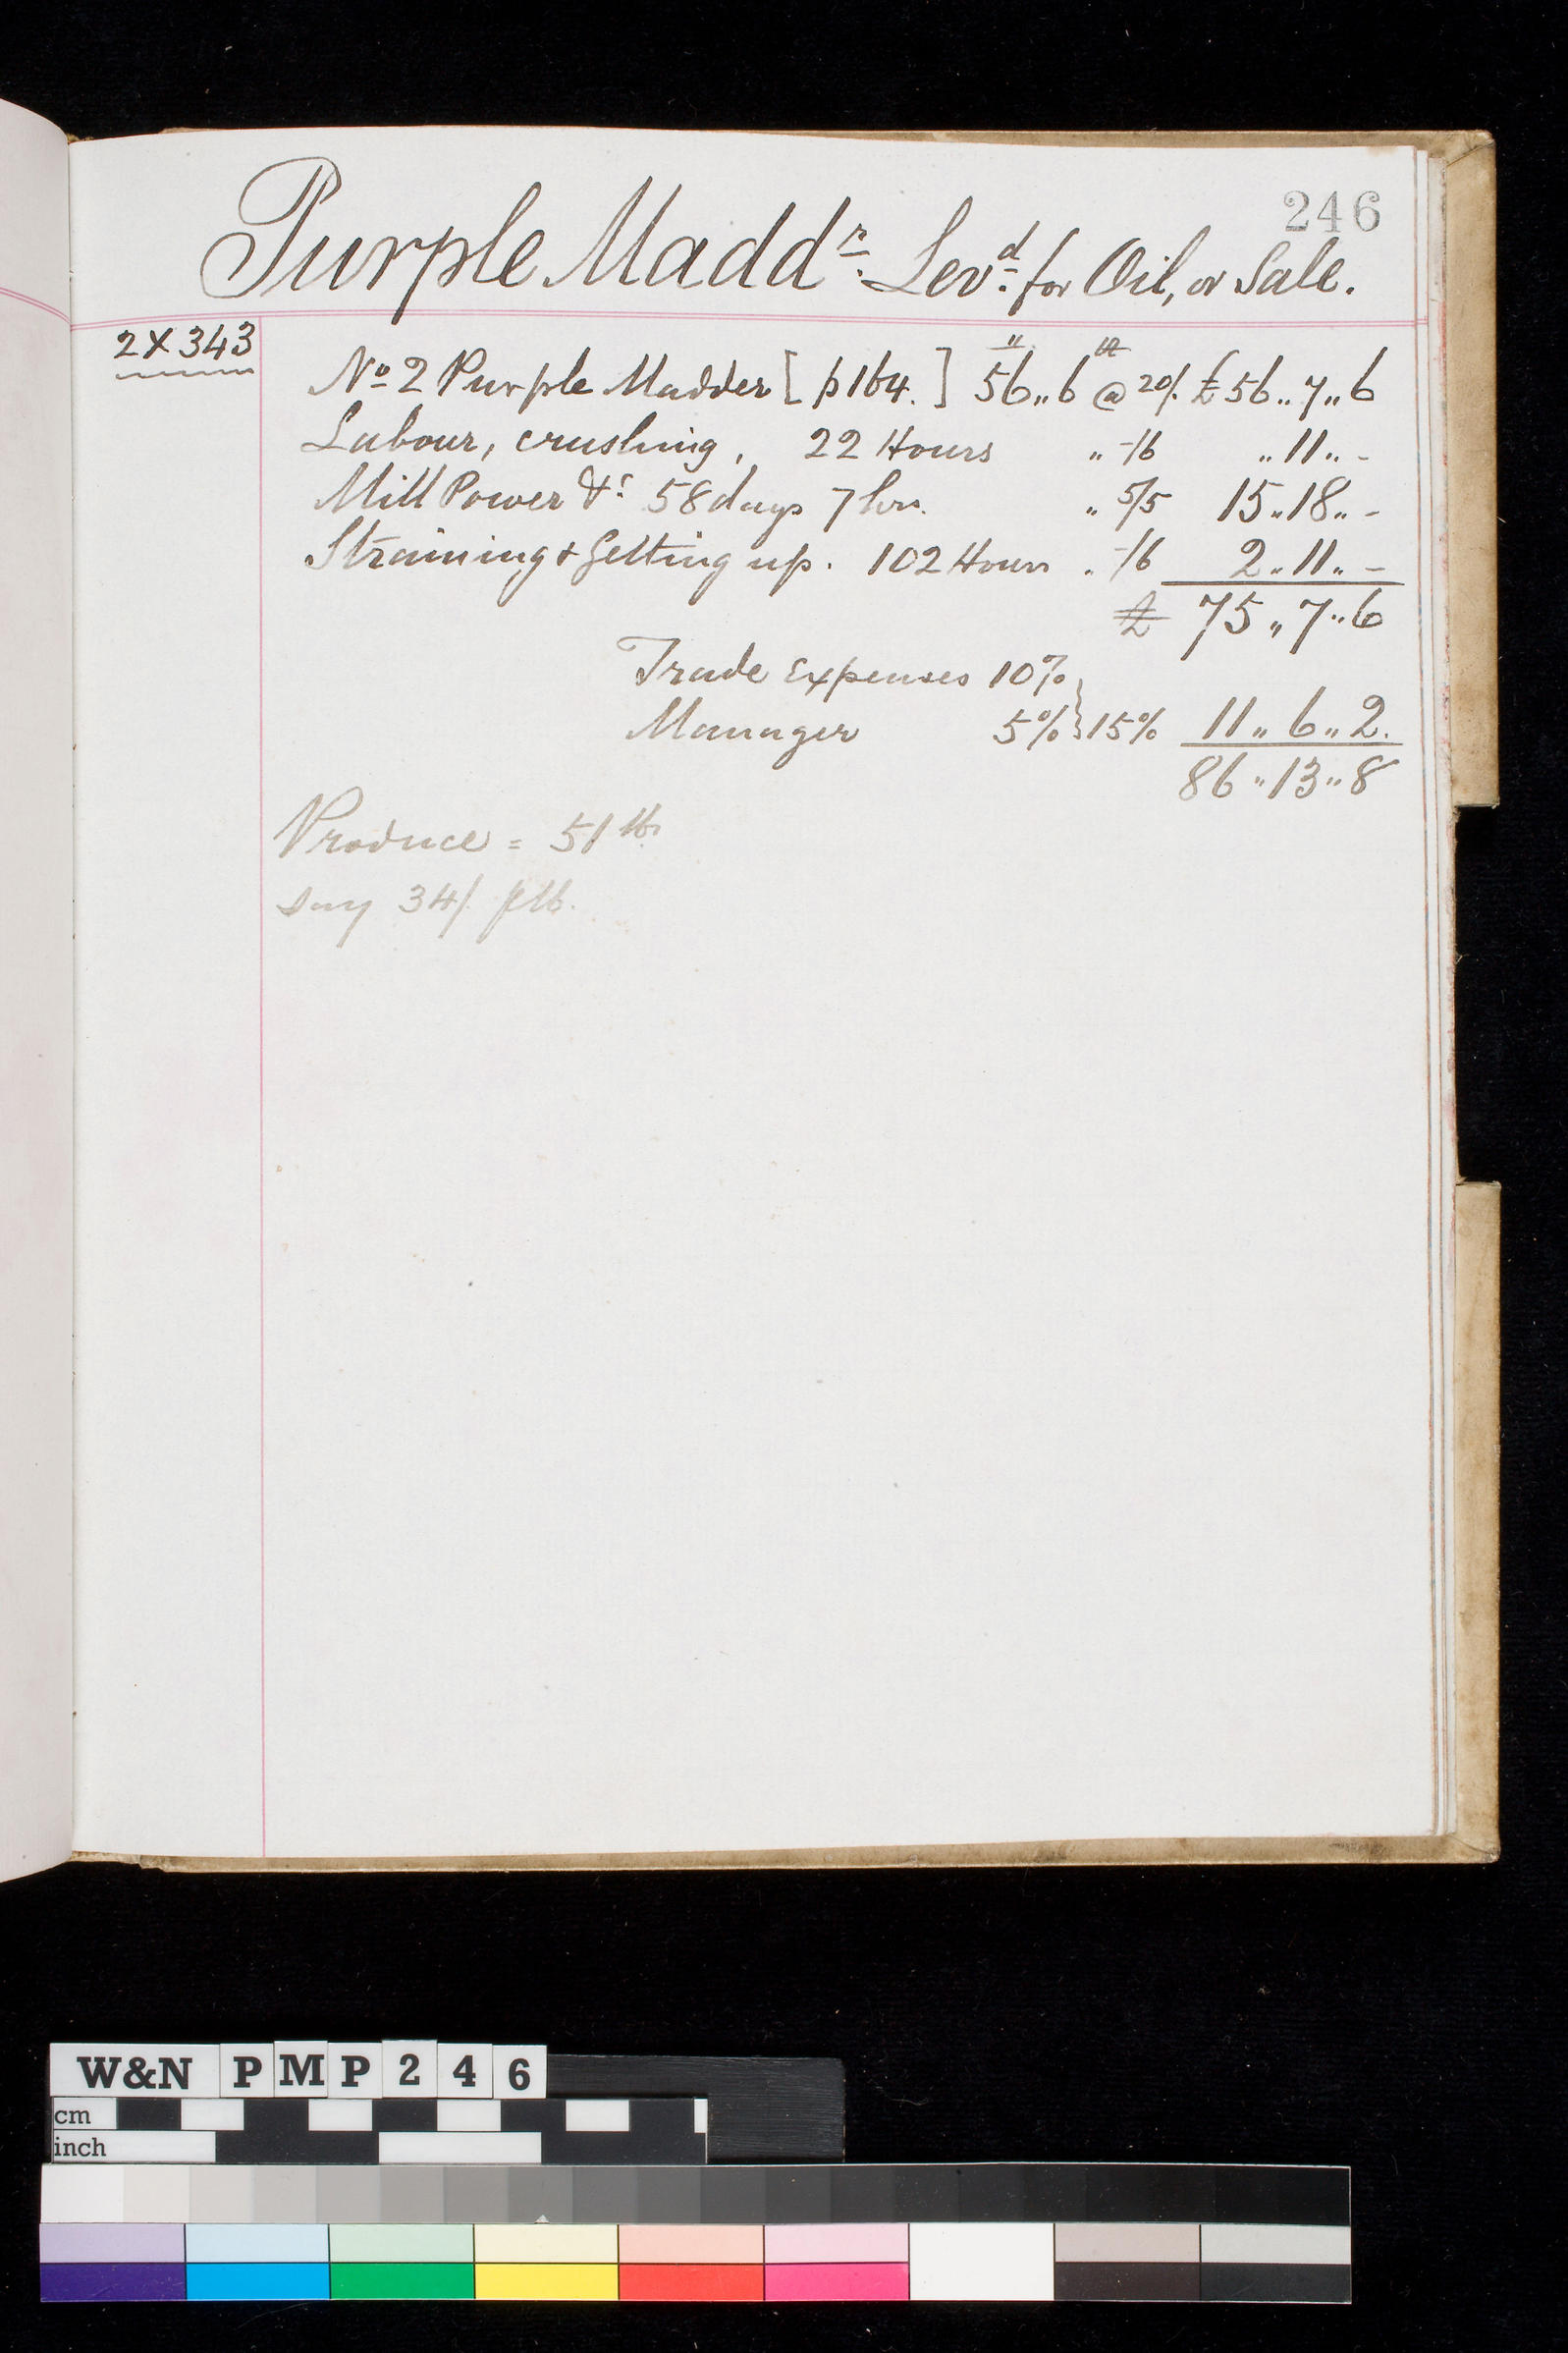 246
Purple Maddr. Levd. for Oil, or Sale.
2X343
No 2 Purple Madder [p164.] 56„6 @ 20/. £56„7„6
Labour, crushing, 22 Hours „ -/6 „11„-
Mill Power &c 58days 7hrs. „ 5/5 15„18„-
Straining & Getting up. 102 Hours „ -/6 2„11„-
£ 75„7„6
Trade Expenses 10%
Manager 5% } 15% 11„6„2.
86„13„8
Produce = 51 lb.
say 34/. p lb.
W&N PMP246
cm
inch